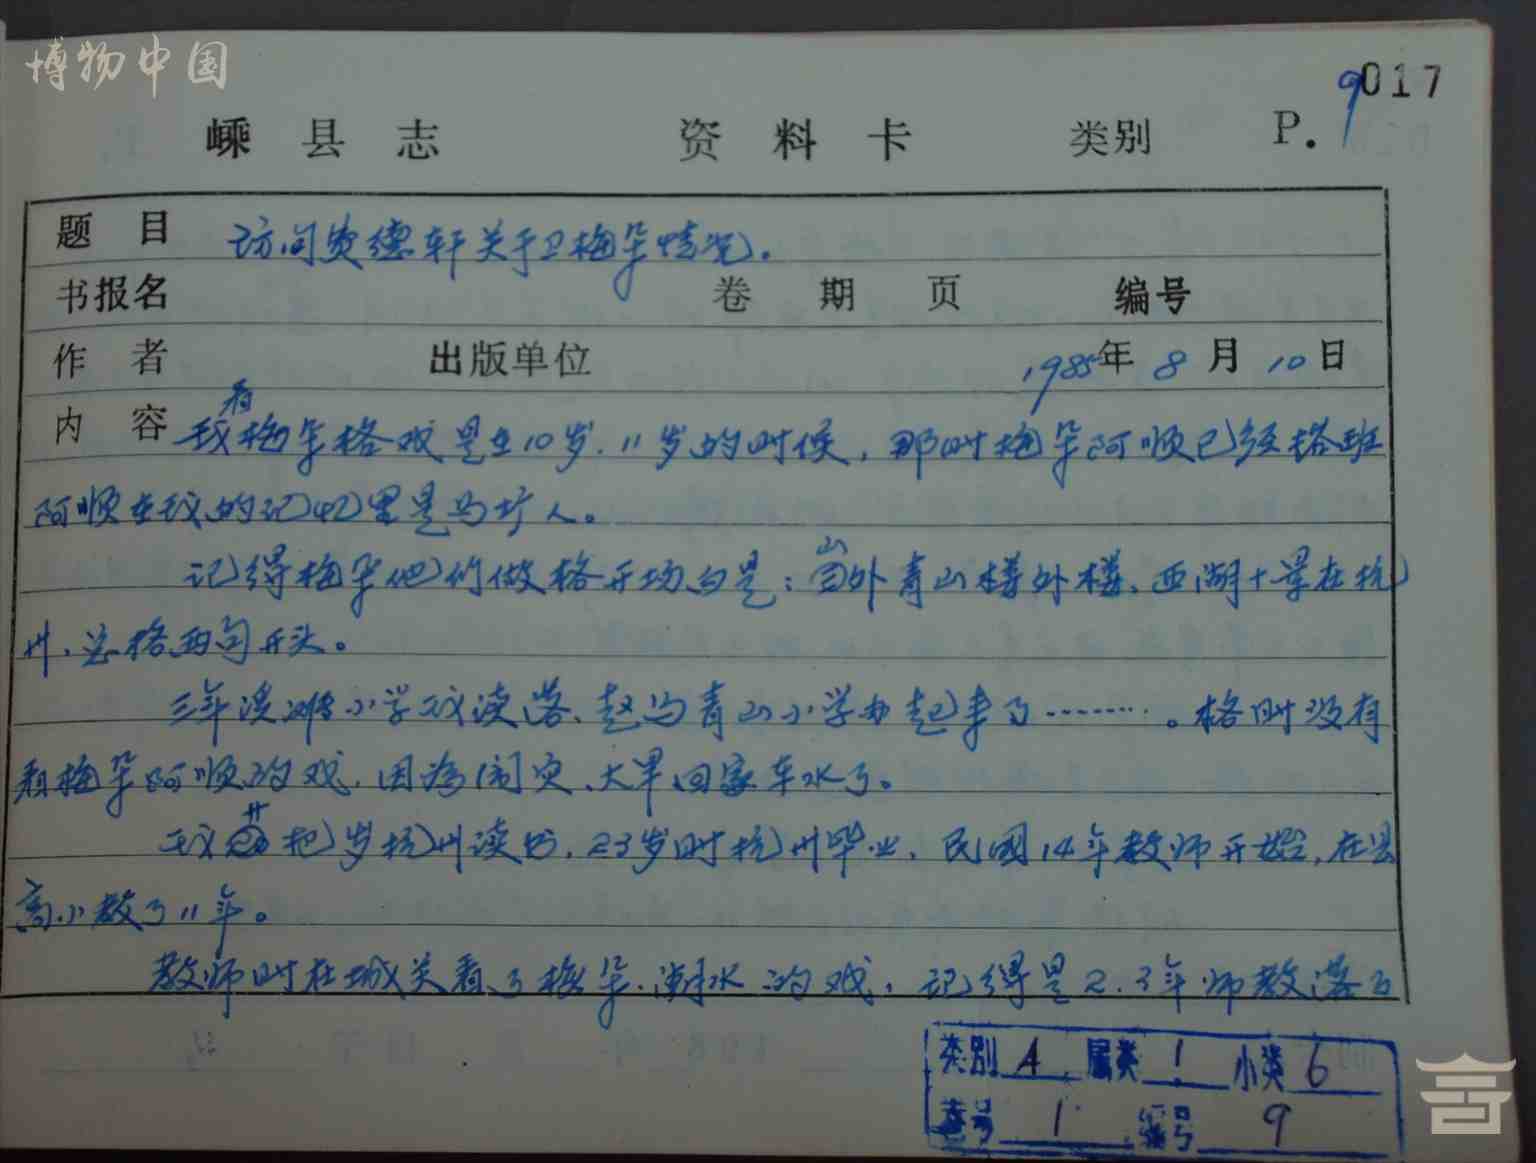 博物中国
9017
嵊县志 资料卡 类别 P. 9
题目 访问费德轩关于卫梅朵情况。
书报名 卷 期 页 编号
作者 出版单位 1985年8月10日
看
内容 我梅朵格戏是在10岁.11岁的时候，那时梅朵阿顺已经搭班
阿顺在我的记忆里是马圹人。
记得梅朵他们做格开场白是：山外青山楼外楼、西湖十景在杭
州、总格两句开头。
三年溪滩小学我读落、赵马青山小学办起来了………。格时没有
看梅朵阿顺的戏，因为闹灾、大旱回家车水了。
我 廿 把岁杭州读书，23岁时杭州毕业，民国14年教师开始，在县
高小教了11年。
教师时在城关看了梅朵、潮水的戏，记得是2.3年师教落
类别 A 属类 1 小类 6
卷号 1 编号 9